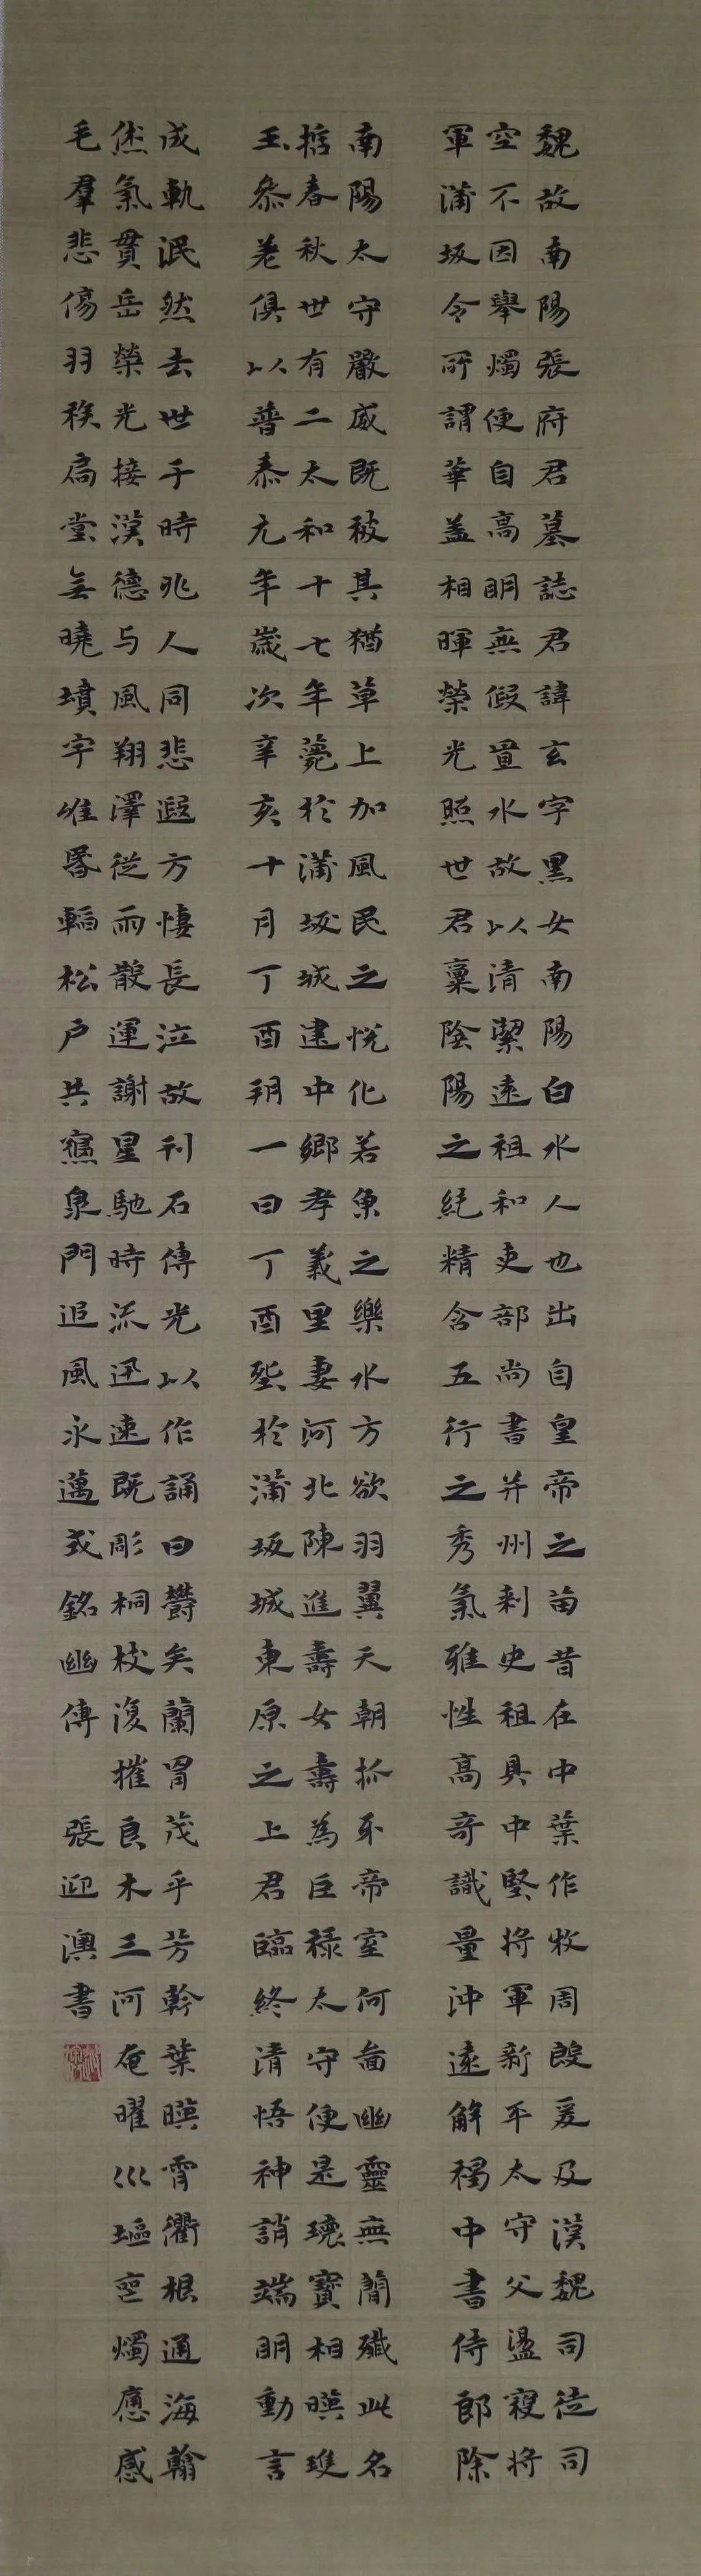 魏故南陽張府君墓誌君諱玄字黑女南陽白水人也出自皇帝之苗昔在中葉作牧周殷爰及漢魏司徒司
空不因舉燭便自高明無假置水故以清潔遠祖和吏部尚書并州刺史祖具中堅將軍新平太守父盪寇將
軍蒲坂令所謂華盖相暉榮光照世君稟陰陽之純精含五行之秀氣雅性高奇識量沖遠解褐中書侍郎除
南陽太守嚴威既被其猶草上加風民之悅化若魚之樂水方欲羽翼天朝抓牙帝室何啚幽靈無簡殲此名
哲春秋世有二太和十七年薨於蒲坂城建中鄉孝義里妻河北陳進壽女壽為巨祿太守便是瓌寶相暎瓊
玉叅差俱以普泰元年歲次辛亥十月丁酉朔一日丁酉塟於蒲坂城東原之上君臨終清悟神誚端明動言
成軌泯然去世于時兆人同悲遐方悽長泣故刊石傳光以作誦曰欝矣蘭胄茂乎芳幹葉暎霄衢根通海翰
烋氣貫岳榮光接漢德与風翔澤從雨散運謝星馳時流迅速既彫桐枝復摧良木三河奄曜巛堰喪燭應感
毛羣悲傷羽族扃堂無曉墳宇唯昬韜松户共窵泉門追風永邁式銘幽傳 張迎澳書